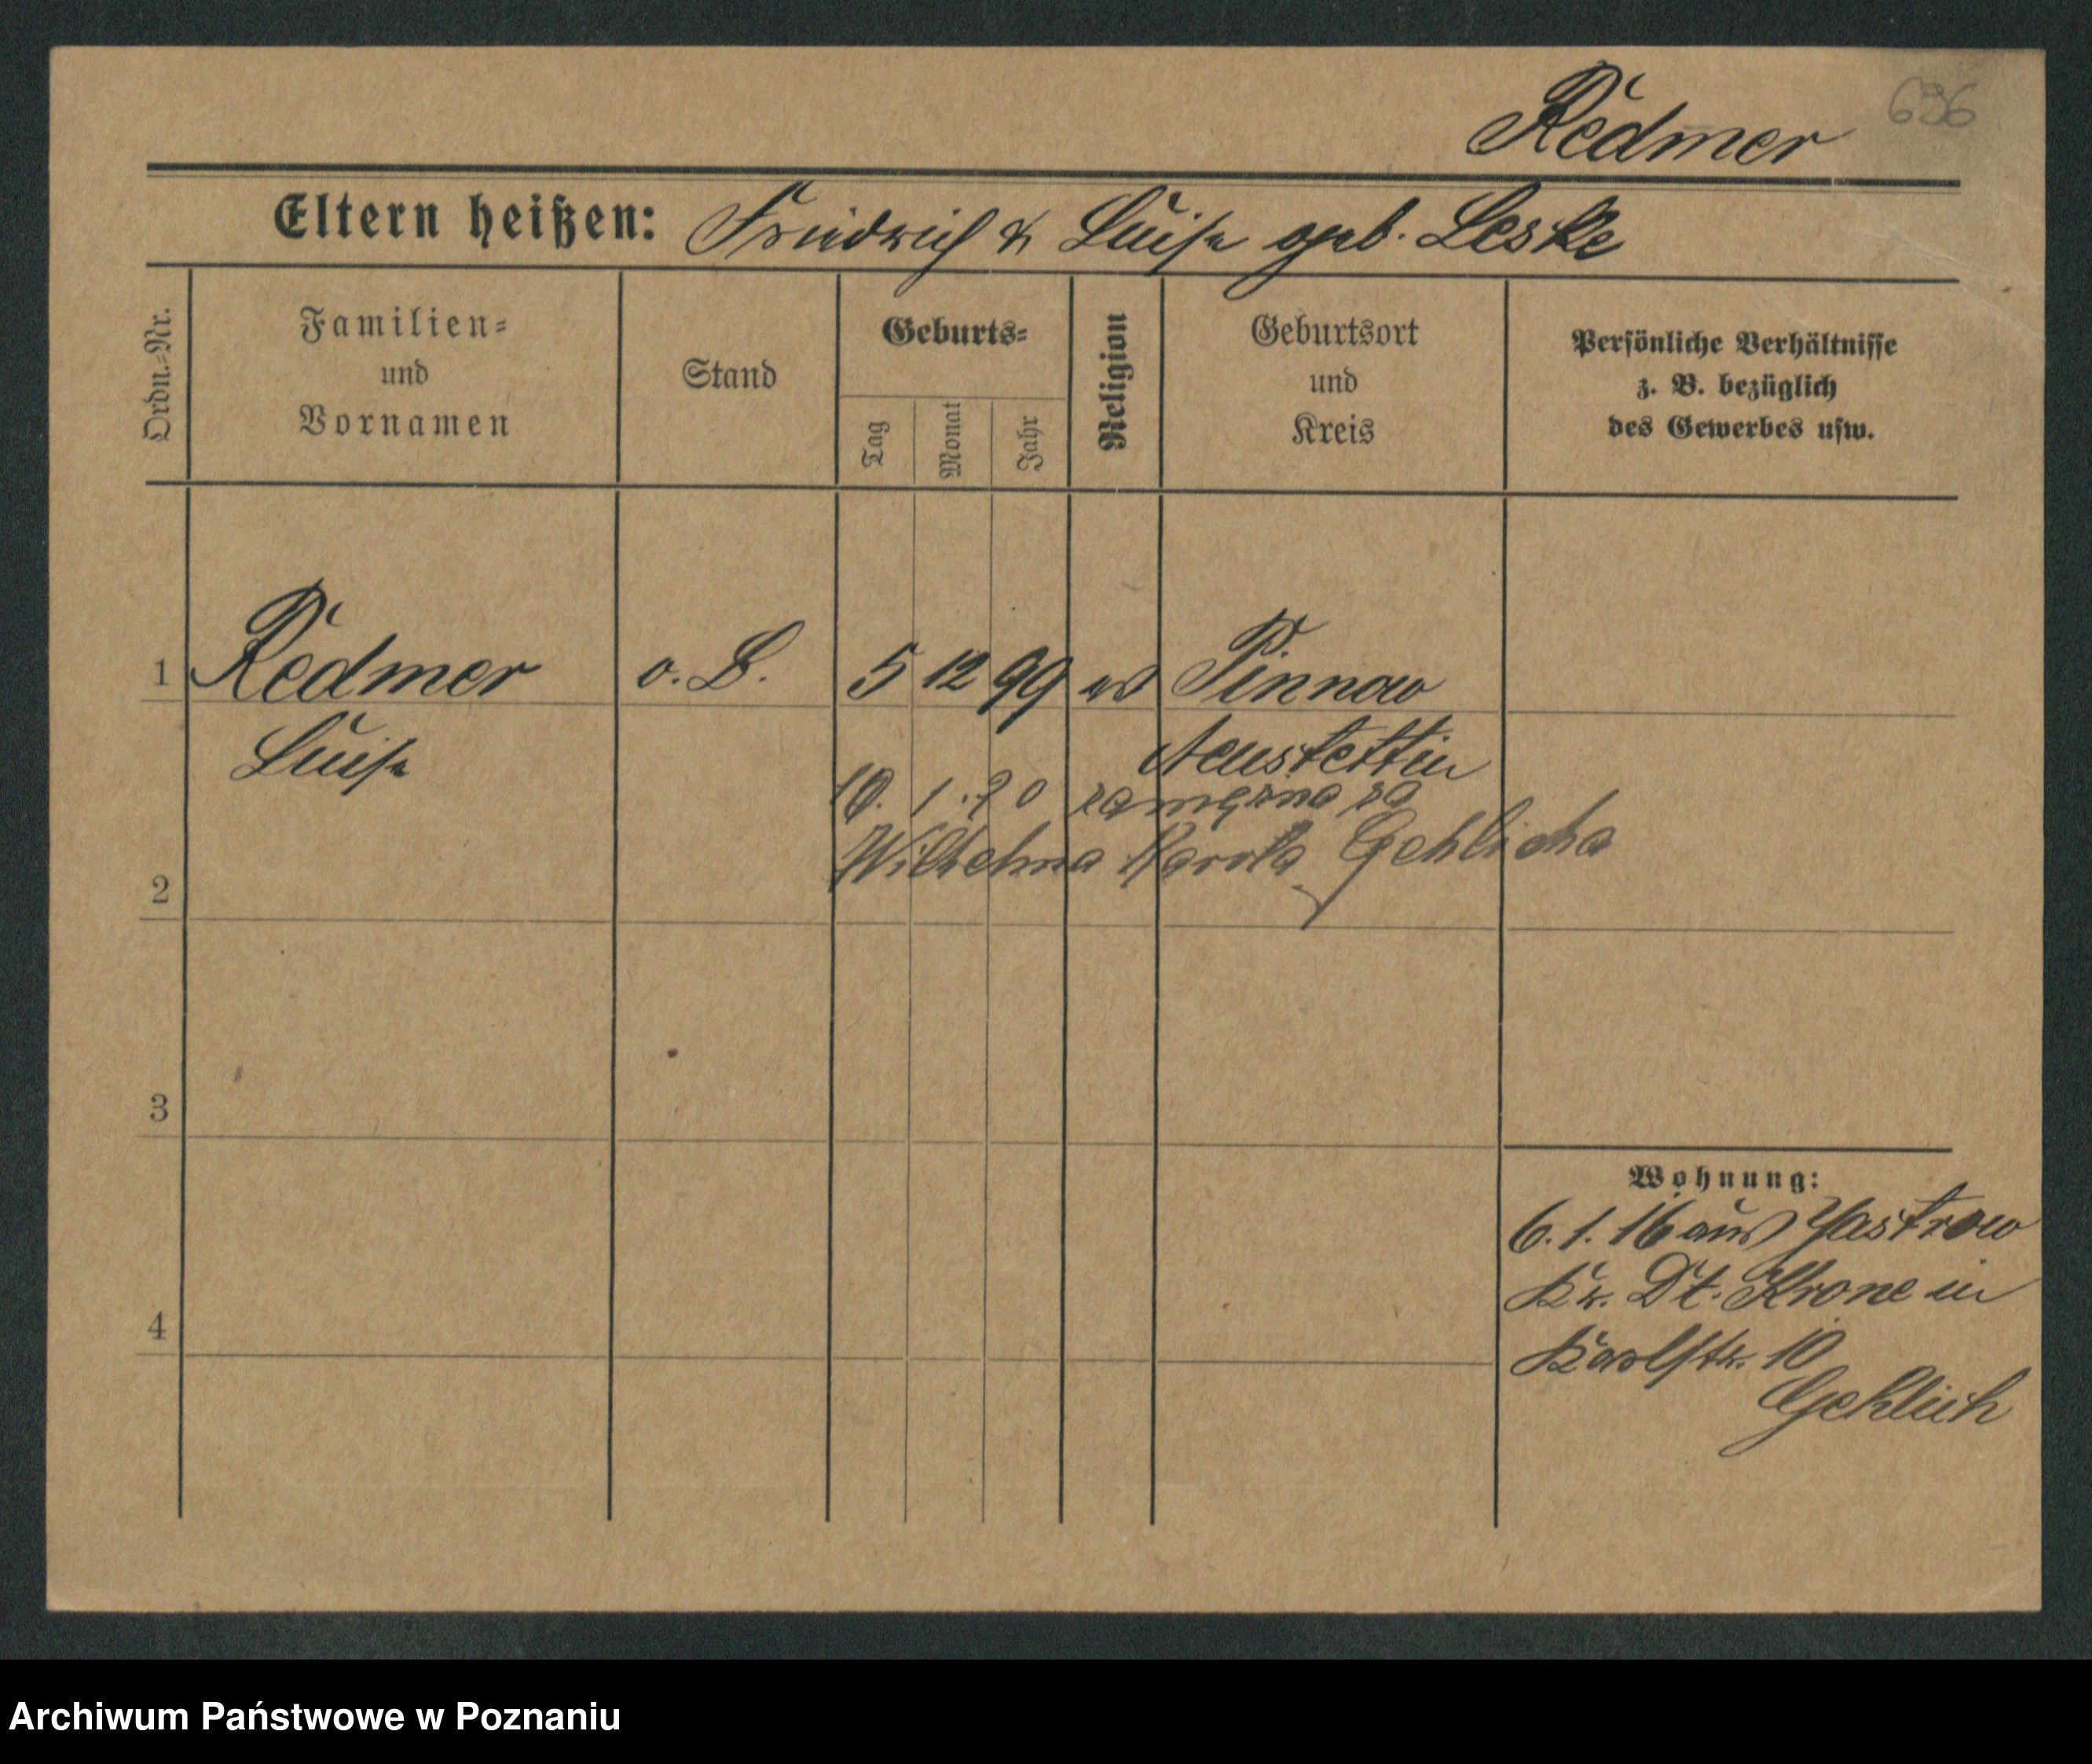 Redmer
636
Eltern heißen: Friedrich & Luise geb. Leske
Ordn.=Nr.
Familien=
und
Vornamen
Stand
Geburts=
Tag
Monat
Jahr
Religion
Geburtsort
und
Kreis
Persönliche Verhältnisse
z. B. bezüglich
des Gewerbes usw.
1 Redmer o. B. 5 12 99 ev Pinnow
Luise Neustettin
10. 1. 20 zamężna za
2 Wilhelma Karola Gehlicha
3
4
Wohnung:
6. 1. 16 aus Jastrow
Kr. Dt. Krone in
Karlstr. 10
Gehlich
Archiwum Państwowe w Poznaniu